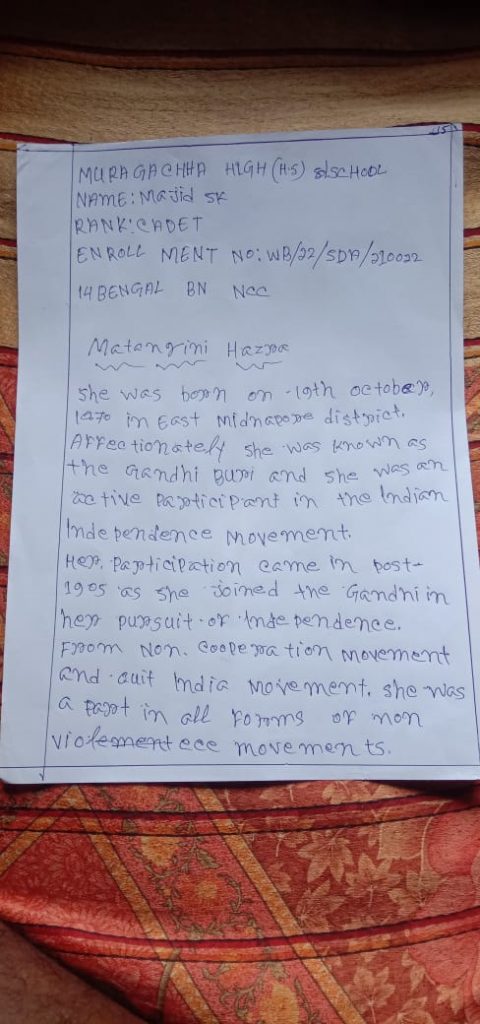 MURAGACHHA HIGH (H.S) SCHOOL
NAME: Majid SK
RANK: CADET
ENROLL MENT NO: WB/22/SDA/210022
14 BENGAL BN NCC
Matangini Hazra
she was born on 19th october,
1870 in East Midnapore district.
Affectionately she was known as
the Gandhi Buri and she was an
active participant in the Indian
Independence movement.
Her, participation came in post-
1905 as she joined the Gandhi in
her pursuit of Independence.
From Non. Cooperation movement
and quit India movement. she was
a part in all forms of non
movements.